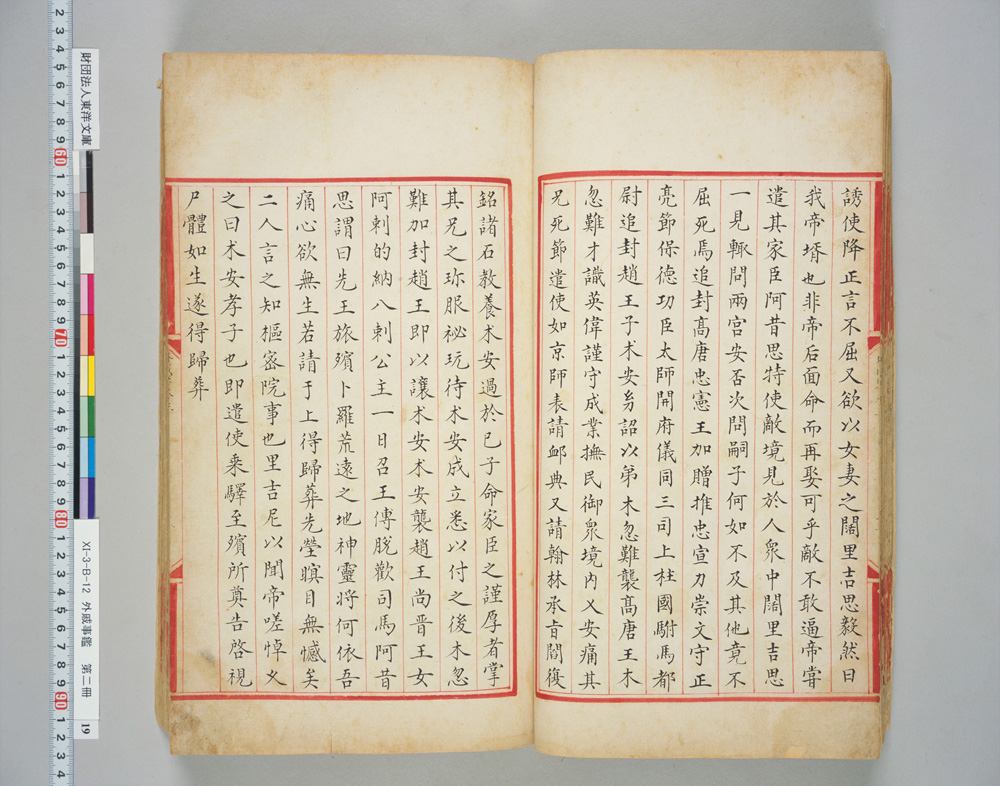 誘使降正言不屈又欲以女妻之闊里吉思毅然曰
我帝壻也非帝后面命而再娶可乎敵不敢逼帝嘗
遣其家臣阿昔思特使敵境見於人衆中闊里吉思
一見輙問兩宮安否次問嗣子何如不及其他竟不
屈死焉追封高唐忠憲王加贈推忠宣力崇文守正
亮節保德功臣太師開府儀同三司上柱國駙馬都
尉追封趙王子术安㓜詔以弟木忽難襲高唐王木
忽難才識英偉謹守成業撫民御衆境内乂安痛其
兄死節遣使如京師表請䘏典又請翰林承旨閻復
銘諸石教養木安過於已子命家臣之謹厚者掌
其兄之珎服祕玩待术安成立悉以付之後木忽
難加封趙王即以讓术安木安襲趙王尚晋王女
阿剌的納八剌公主一日召王傅脫歡司馬阿昔
思謂曰先王旅殯卜羅荒遠之地神靈將何依吾
痛心欲無生若請于上得歸葬先塋瞑目無憾矣
二人言之知樞密院事也里吉尼以聞帝嗟悼乂
之曰术安孝子也即遣使乗驛至殯所奠告啓視
尸體如生遂得歸葬
財団法人東洋文庫
XI-3-B-12 外戚事鑑 第二冊
19
2 3 4 5 6 7 8 9 60 1 2 3 4 5 6 7 8 9 70 1 2 3 4 5 6 7 8 9 80 1 2 3 4 5 6 7 8 9 90 1 2 3 4